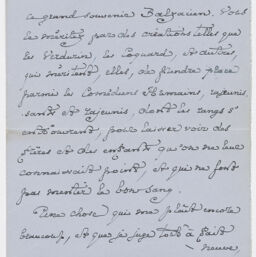 ce grand souvenir Balzacien. Vous
le méritez par des créations telles que
les Verdurin, les Coquard, et d'autres,
qui méritent, elles, de prendre place
parmi les Comédiens Humains, rajeunis-
sants et rajeunis, dont les rangs s'
entrouvrent, pour laisser voir des
frères et des enfants qu'on ne leur
connaissait point, et qui ne font
pas mentir le bon sang.
Une chose qui me plaît encore
beaucoup, et que je juge tout à fait
neuve,